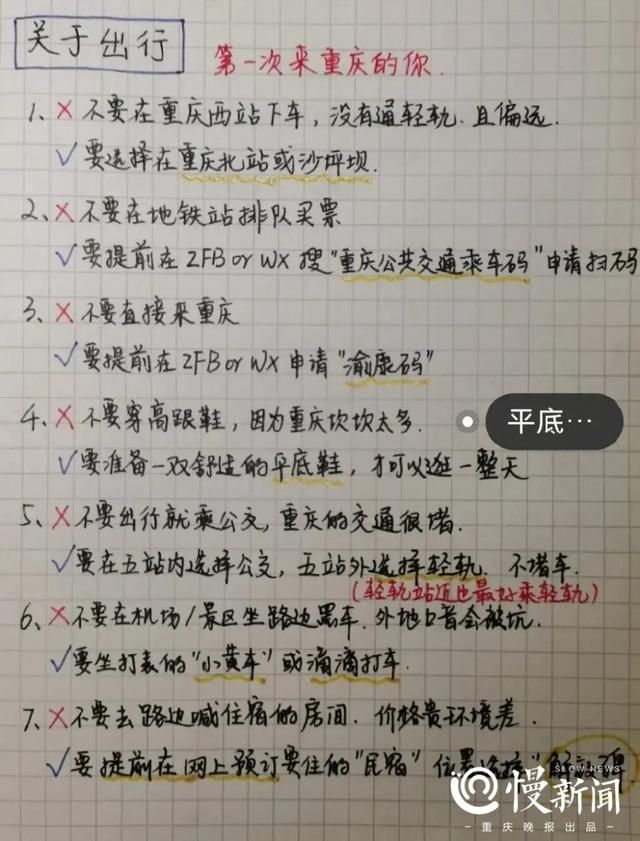 关于出行
第一次来重庆的你.
1、× 不要在重庆西站下车，没有通轻轨.且偏远.
√ 要选择在重庆北站或沙坪坝.
2、× 不要在地铁站排队买票
√ 要提前在ZFB or WX 搜"重庆公共交通乘车码"申请扫码
3、× 不要直接来重庆
√ 要提前在ZFB or WX 申请"渝康码"
4、× 不要穿高跟鞋，因为重庆坎坎太多.
平底…
√ 要准备一双舒适的平底鞋，才可以逛一整天
5、× 不要出行就乘公交，重庆的交通很堵.
√ 要在五站内选择公交，五站外选择轻轨.不堵车.
(轻轨站近也最好乘轻轨)
6、× 不要在机场/景区坐路边黑车.外地口音会被坑.
√ 要坐打表的"小黄车"或滴滴打车.
7、× 不要去路边喊住宿的房间.价格贵环境差.
√ 要提前在网上预订要住的"民宿"位置选择"解放碑
SLOW NEWS
慢新闻
-重庆晚报出品-